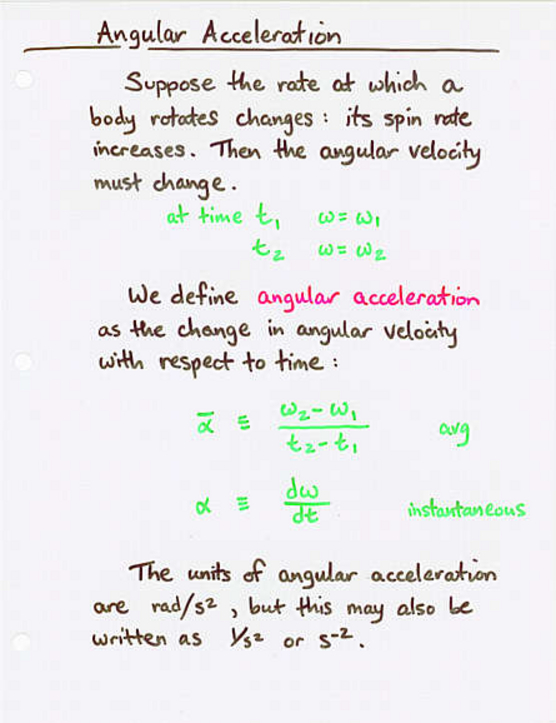 Angular Acceleration
Suppose the rate at which a
body rotates changes : its spin rate
increases. Then the angular velocity
must change.
at time t₁ ω = ω₁
t₂ ω = ω₂
We define angular acceleration
as the change in angular velocity
with respect to time :
ᾱ ≡ (ω₂ - ω₁)/(t₂ - t₁) avg
α ≡ dω/dt instantaneous
The units of angular acceleration
are rad/s², but this may also be
written as 1/s² or s⁻².